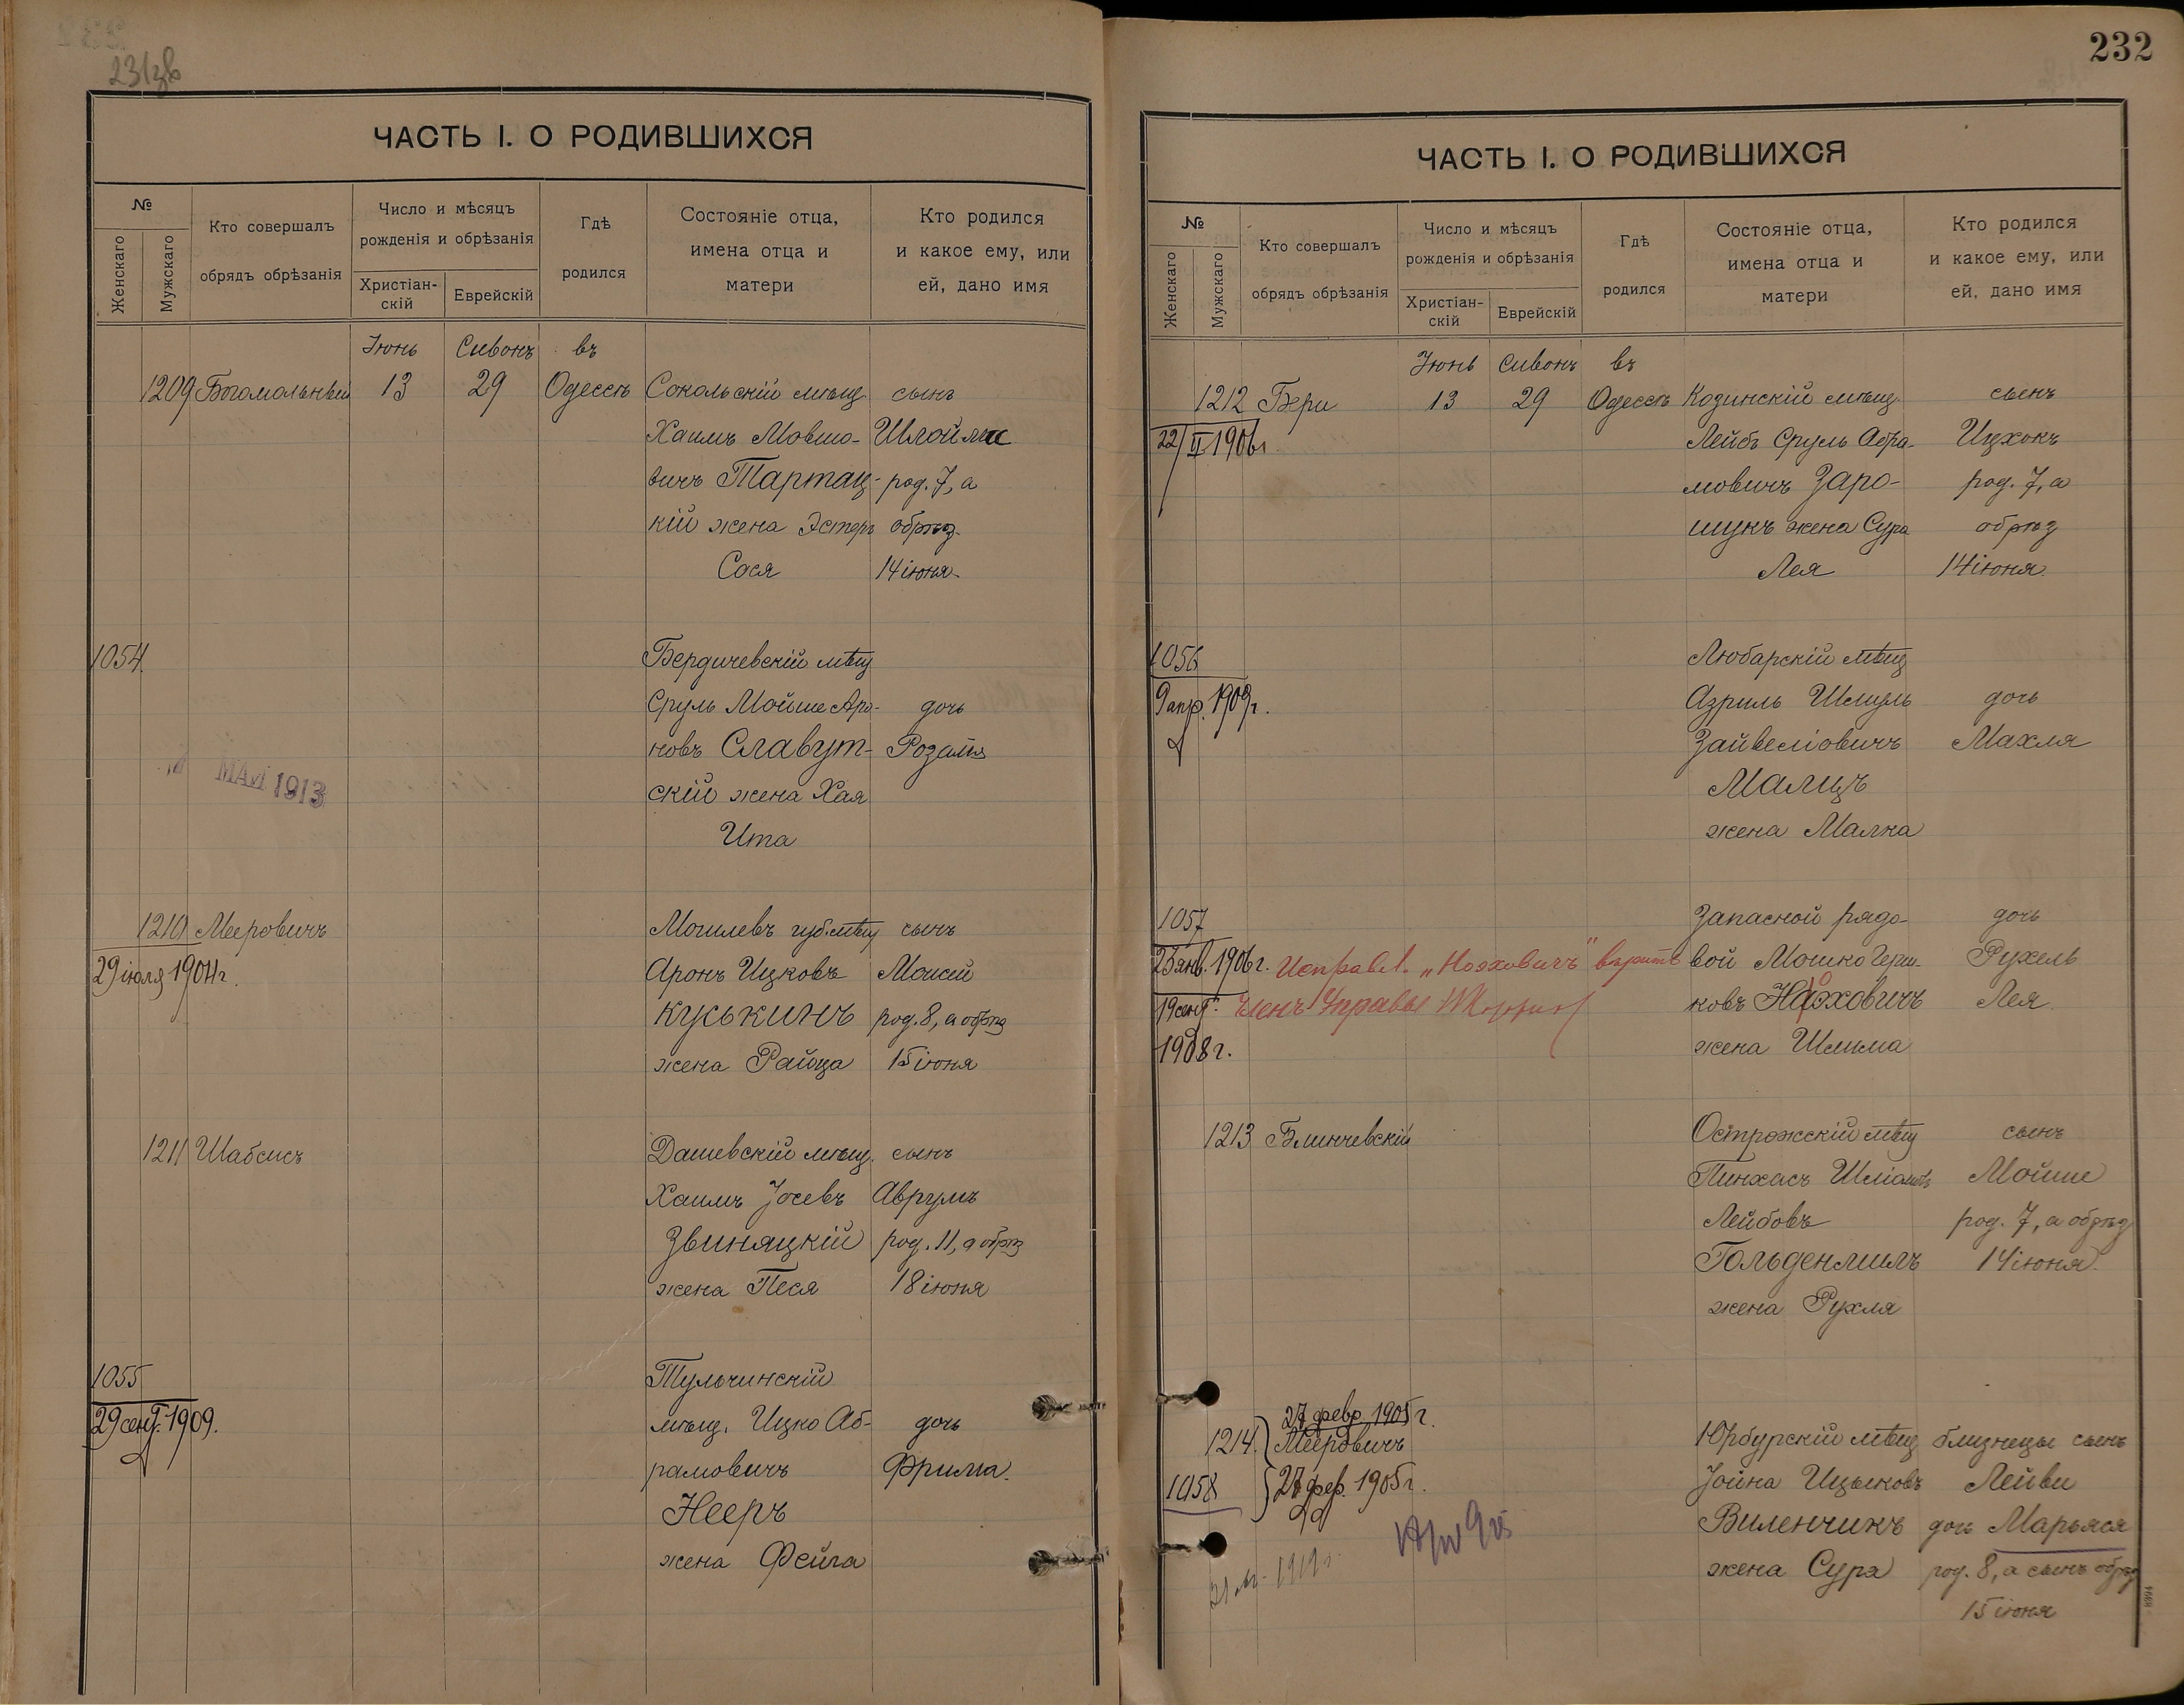 231зв
ЧАСТЬ I. О РОДИВШИХСЯ
№
Женскаго
Мужскаго
Кто совершалъ
обрядъ обрѣзанія
Число и мѣсяцъ
рожденія и обрѣзанія
Христіан-
скій
Еврейскій
Гдѣ
родился
Состояніе отца,
имена отца и
матери
Кто родился
и какое ему, или
ей, дано имя
Іюнь Сивонъ въ
1209 Богомольный 13 29 Одессѣ Сокольскій мѣщ. сынъ
Хаимъ Мовшо- Шлойма
вичъ Тартац- род. 7, а
кій жена Эстеръ обрѣз.
Сося 14 іюня.
1054 Бердичевскій мѣщ
Сруль Мойше Аро- дочь
новъ Славут- Розалія
скій жена Хая
Ита
МАЯ 1913
1210 Мееровичъ Могилевъ губ. мѣщ сынъ
29 іюля 1904 г. Аронъ Ицковъ Моисей
Куськинъ род. 8, а обрѣз
жена Райца 15 іюня
1211 Шабсисъ Дашевскій мѣщ. сынъ
Хаимъ Іосевъ Аврумъ
Звиняцкій род. 11, а обрѣз
жена Песя 18 іюня
1055 Тульчинскій
29 сент. 1909. мѣщ. Ицко Аб- дочь
рамовичъ Фрима.
Нееръ
жена Фейга
232
ЧАСТЬ I. О РОДИВШИХСЯ
№
Женскаго
Мужскаго
Кто совершалъ
обрядъ обрѣзанія
Число и мѣсяцъ
рожденія и обрѣзанія
Христіан-
скій
Еврейскій
Гдѣ
родился
Состояніе отца,
имена отца и
матери
Кто родился
и какое ему, или
ей, дано имя
Іюнь Сивонъ въ
1212 Бери 13 29 Одессѣ Козинскій мѣщ. сынъ
22/II 1906 г. Лейбъ Сруль Абра- Ицхокъ
мовичъ Заро- род. 7, а
щукъ жена Сура обрѣз
Лея 14 іюня.
1056 Любарскій мѣщ
9 апр. 1909 г. Азриль Шмуль дочь
Зайвеліовичъ Махля
Малицъ
жена Малка
1057 Запасной рядо- дочь
23 янв. 1906 г. Исправл. „Нояховичъ" вѣрить вой Мошко Герш- Рухель
19 сент. Членъ Управы ковъ Нояховичъ Лея.
1908 г. жена Шлима
1213 Блинчевскій Острожскій мѣщ сынъ
Пинхасъ Мойше
Лейбовъ род. 7, а обрѣз
Гольденмилъ 14 іюня.
жена Рухля
27 февр. 1905 г.
1214 Мееровичъ Юрбурскій мѣщ близнецы сынъ
1058 27 фев. 1905 г. Іойна Ицыковъ Лейви
Виленчикъ дочь Марьяся
жена Сура род. 8, а сынъ обрѣз
15 іюня